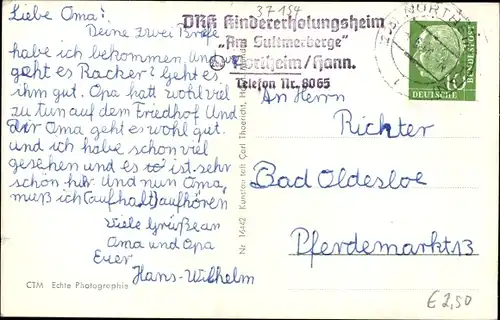 37 184
Liebe Oma!
Deine zwei Briefe
habe ich bekommen. Und
geht es Racker? Geht es
ihm gut. Opa hatt wohl viel
zu tun auf dem Friedhof Und
dir Oma geht es wohl gut.
und ich habe schon viel
gesehen und es ist sehr
schön hir. Und nun Oma,
muß ich (aufhalt)aufhören
Viele Grüße an
Oma und Opa
Euer
Hans-Wilhelm
CTM Echte Photographie
Nr. 16442 Kunsten felt Carl Thoericht,
DRK Kindererholungsheim
„Am Sultmerberge"
Northeim/Hann.
Telefon Nr. 8065
NORTH
10
DEUTSCHE
BUNDESPOST
An Herrn
Richter
Bad Oldesloe
Pferdemarkt 13
€ 2,50